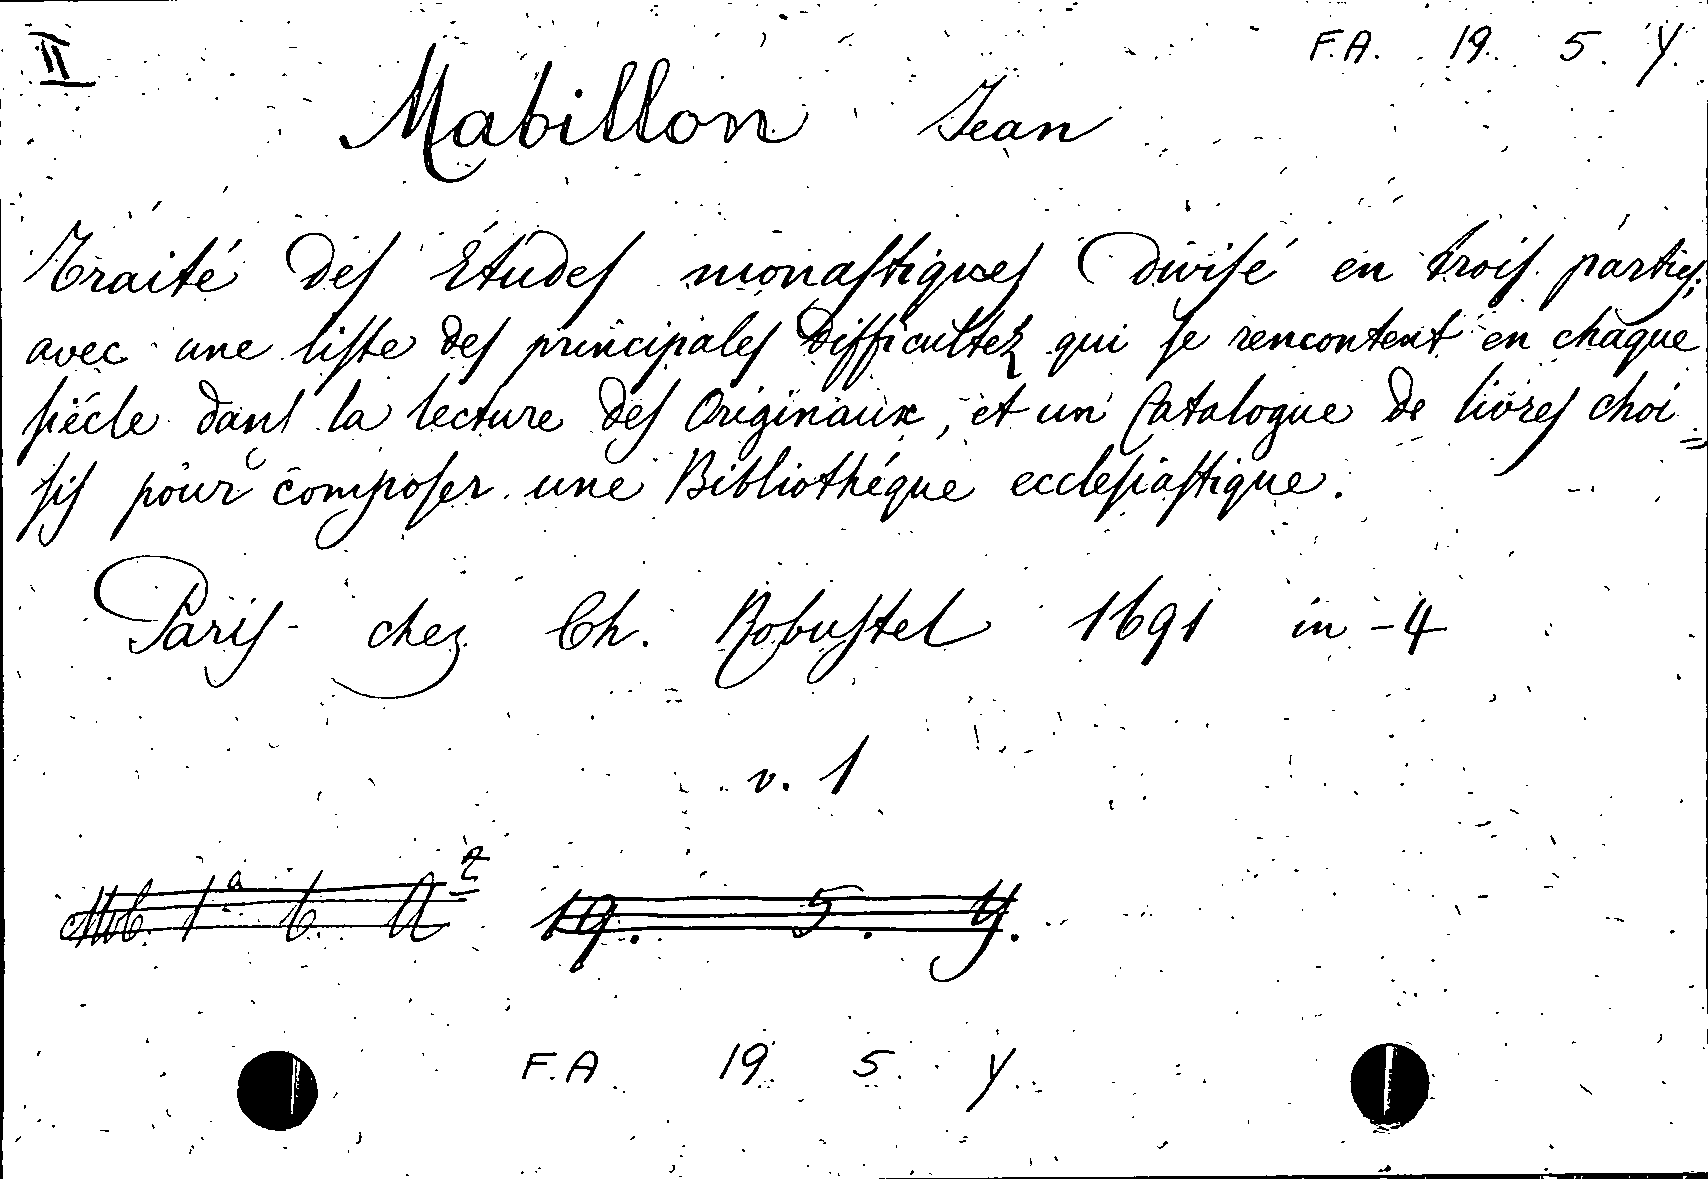 II
F.A. 19. 5. Y.
Mabillon Jean
Traité des Études monastiques divisé en trois parties;
avec une liste des principales difficultez qui se rencontent en chaque
siécle dans la lecture des Originaux, et un Catalogue de livres choi=
sis pour composer une Bibliothéque ecclesiastique.
Paris chez Ch. Robustel 1691 in-4
v. 1
19. 5. Y.
F.A. 19. 5. Y.